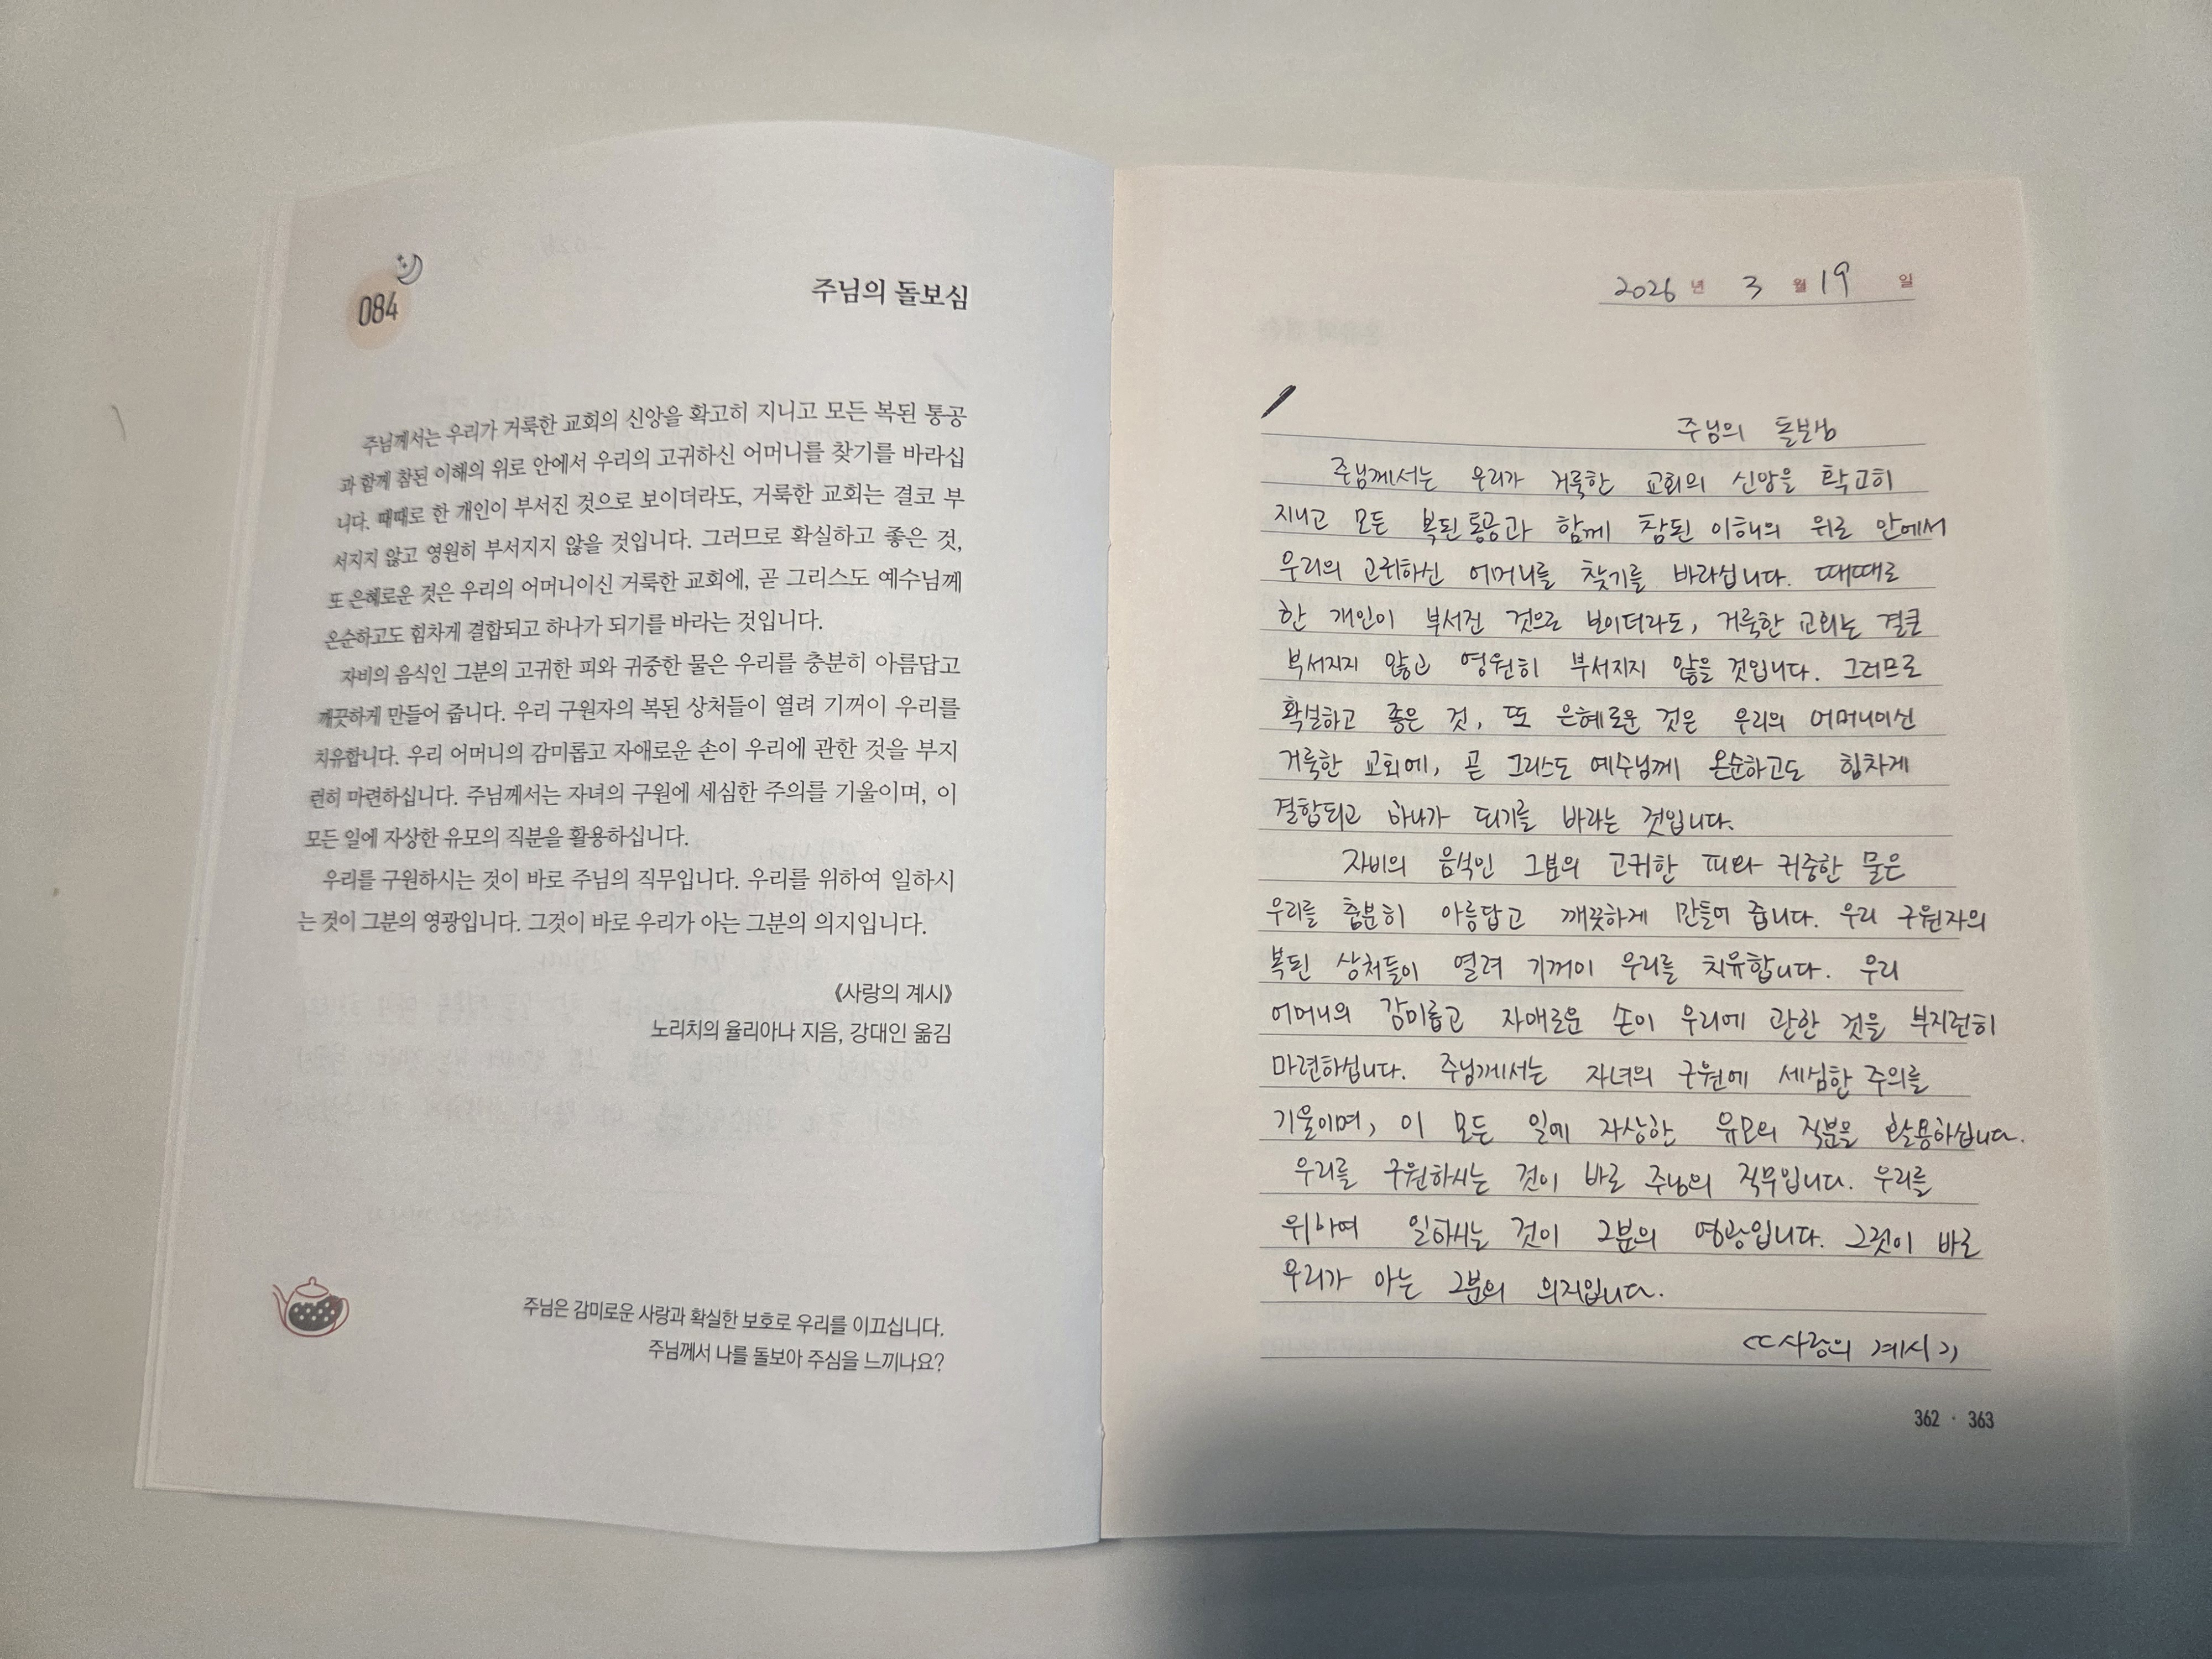 084
주님의 돌보심
주님께서는 우리가 거룩한 교회의 신앙을 확고히 지니고 모든 복된 통공
과 함께 참된 이해의 위로 안에서 우리의 고귀하신 어머니를 찾기를 바라십
니다. 때때로 한 개인이 부서진 것으로 보이더라도, 거룩한 교회는 결코 부
서지지 않고 영원히 부서지지 않을 것입니다. 그러므로 확실하고 좋은 것,
또 은혜로운 것은 우리의 어머니이신 거룩한 교회에, 곧 그리스도 예수님께
온순하고도 힘차게 결합되고 하나가 되기를 바라는 것입니다.
자비의 음식인 그분의 고귀한 피와 귀중한 물은 우리를 충분히 아름답고
깨끗하게 만들어 줍니다. 우리 구원자의 복된 상처들이 열려 기꺼이 우리를
치유합니다. 우리 어머니의 감미롭고 자애로운 손이 우리에 관한 것을 부지
런히 마련하십니다. 주님께서는 자녀의 구원에 세심한 주의를 기울이며, 이
모든 일에 자상한 유모의 직분을 활용하십니다.
우리를 구원하시는 것이 바로 주님의 직무입니다. 우리를 위하여 일하시
는 것이 그분의 영광입니다. 그것이 바로 우리가 아는 그분의 의지입니다.
《사랑의 계시》
노리치의 율리아나 지음, 강대인 옮김
주님은 감미로운 사랑과 확실한 보호로 우리를 이끄십니다.
주님께서 나를 돌보아 주심을 느끼나요?
2026 년 3 월 19 일
주님의 돌보심
주님께서는 우리가 거룩한 교회의 신앙을 확고히
지니고 모든 복된 통공과 함께 참된 이해의 위로 안에서
우리의 고귀하신 어머니를 찾기를 바라십니다. 때때로
한 개인이 부서진 것으로 보이더라도, 거룩한 교회는 결코
부서지지 않고 영원히 부서지지 않을 것입니다. 그러므로
확실하고 좋은 것, 또 은혜로운 것은 우리의 어머니이신
거룩한 교회에, 곧 그리스도 예수님께 온순하고도 힘차게
결합되고 하나가 되기를 바라는 것입니다.
자비의 음식인 그분의 고귀한 피와 귀중한 물은
우리를 충분히 아름답고 깨끗하게 만들어 줍니다. 우리 구원자의
복된 상처들이 열려 기꺼이 우리를 치유합니다. 우리
어머니의 감미롭고 자애로운 손이 우리에 관한 것을 부지런히
마련하십니다. 주님께서는 자녀의 구원에 세심한 주의를
기울이며, 이 모든 일에 자상한 유모의 직분을 활용하십니다.
우리를 구원하시는 것이 바로 주님의 직무입니다. 우리를
위하여 일하시는 것이 그분의 영광입니다. 그것이 바로
우리가 아는 그분의 의지입니다.
《사랑의 계시》
362 · 363